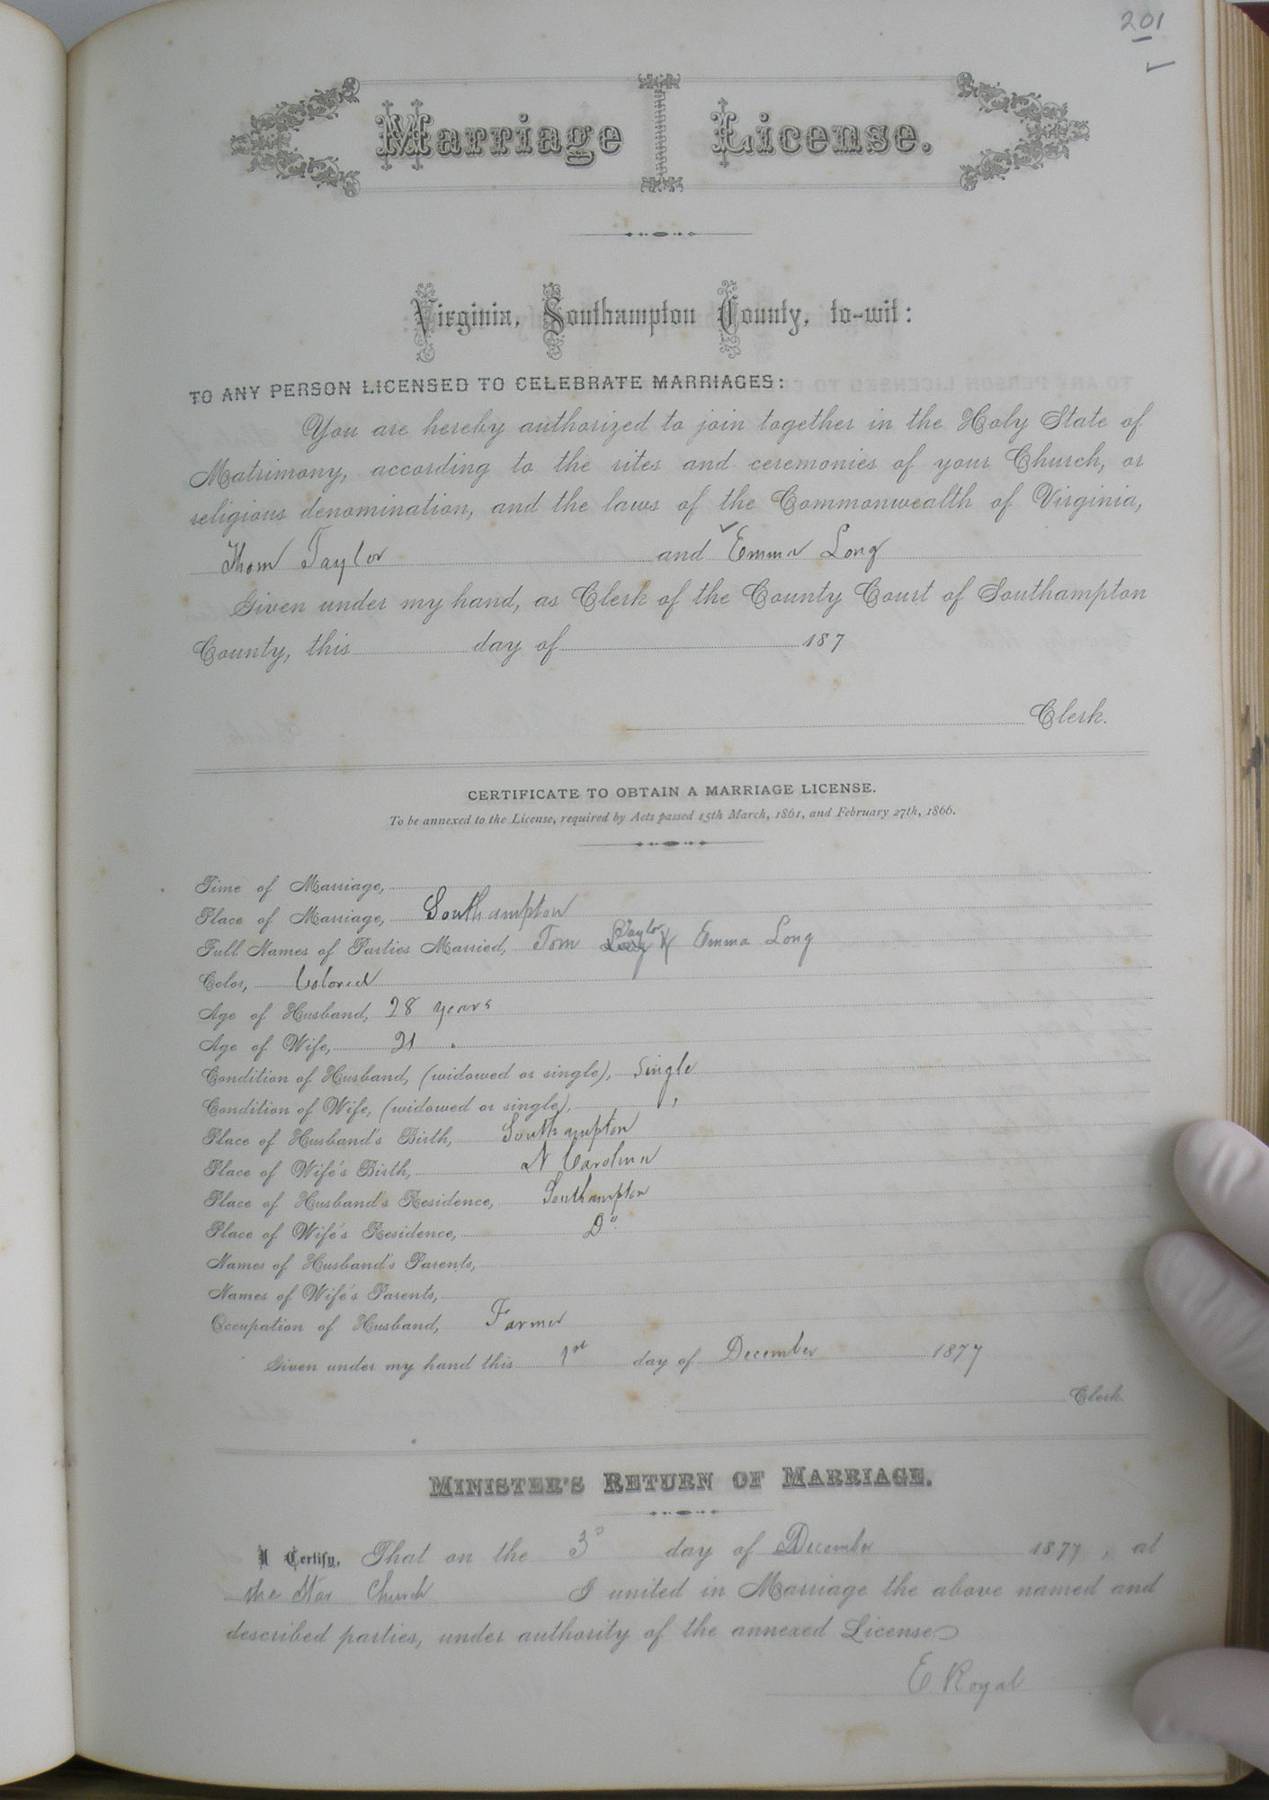 201
Marriage License.
Virginia, Southampton County, to-wit:
TO ANY PERSON LICENSED TO CELEBRATE MARRIAGES:
You are hereby authorized to join together in the Holy State of
Matrimony, according to the rites and ceremonies of your Church, or
religious denomination, and the laws of the Commonwealth of Virginia,
Thom Taylor and Emma Long
Given under my hand, as Clerk of the County Court of Southampton
County, this day of 187
Clerk.
CERTIFICATE TO OBTAIN A MARRIAGE LICENSE.
To be annexed to the License, required by Acts passed 15th March, 1861, and February 27th, 1866.
Time of Marriage,
Place of Marriage, Southampton
Full Names of Parties Married, Tom Taylor & Emma Long
Color, Colored
Age of Husband, 28 years
Age of Wife, 21 "
Condition of Husband, (widowed or single), Single
Condition of Wife, (widowed or single), "
Place of Husband's Birth, Southampton
Place of Wife's Birth, N Carolina
Place of Husband's Residence, Southampton
Place of Wife's Residence, Do
Names of Husband's Parents,
Names of Wife's Parents,
Occupation of Husband, Farmer
Given under my hand this 1st day of December 1877
Clerk.
MINISTER'S RETURN OF MARRIAGE.
I Certify, That on the 3d day of December 1877, at
the Church I united in Marriage the above named and
described parties, under authority of the annexed License
E Royal